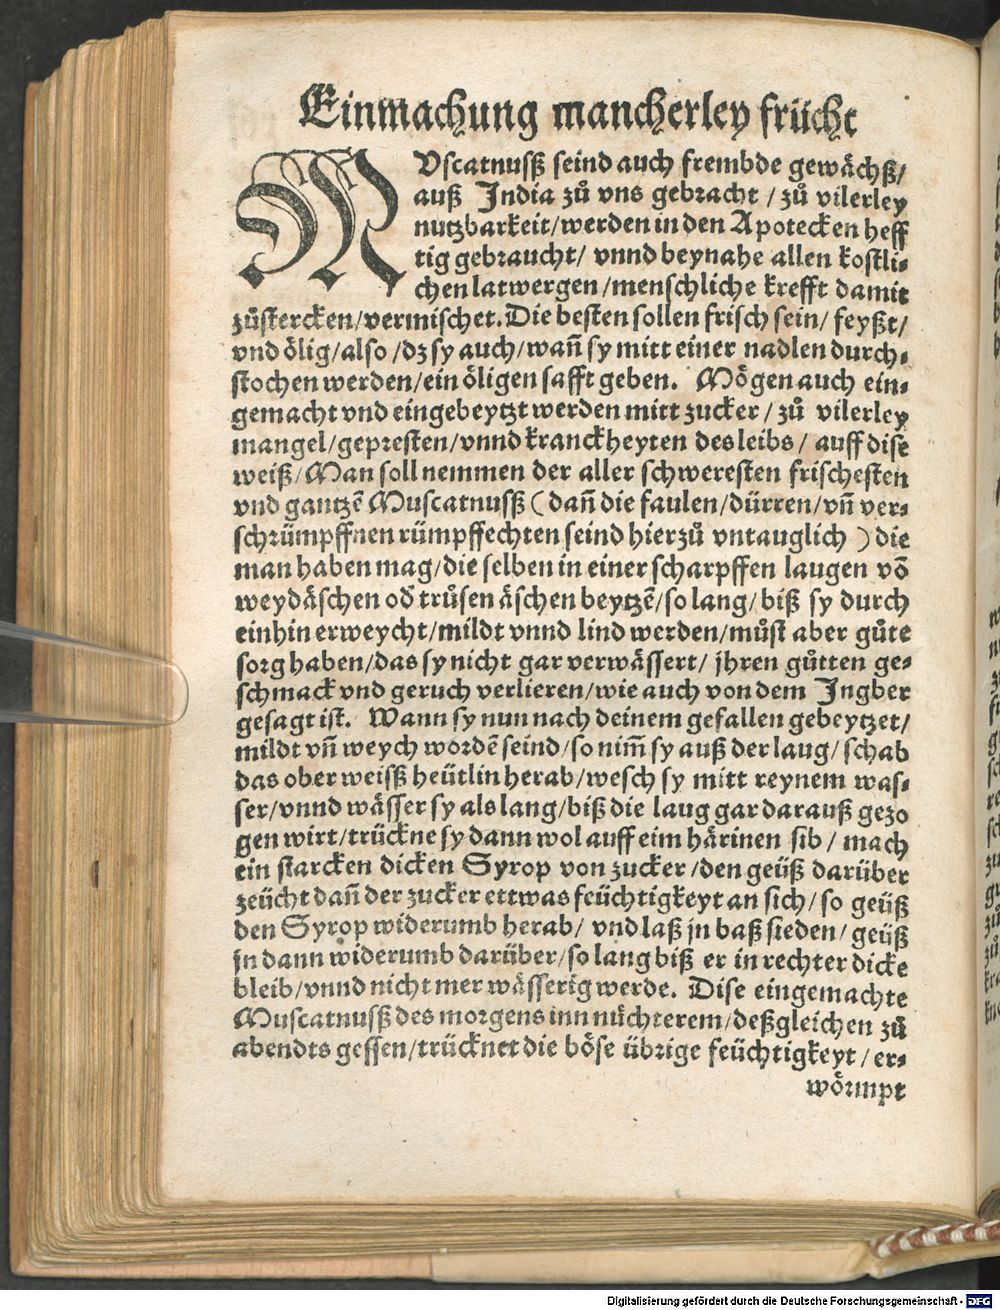 Einmachung mancherley frücht
MVscatnusß seind auch frembde gewächß/
auß India zů vns gebracht / zů vilerley
nutzbarkeit/werden in den Apotecken heff
tig gebraucht/ vnnd beynahe allen kostli⸗
chen latwergen/menschliche krefft damit
zůstercken/vermischet. Die besten sollen frisch sein/ feyßt/
vnd ölig/also/dz sy auch/wañ sy mitt einer nadlen durch⸗
stochen werden/ein öligen safft geben. Mögen auch ein⸗
gemacht vnd eingebeytzt werden mitt zucker / zů vilerley
mangel/gepresten/vnnd kranckheyten des leibs / auff dise
weiß/Man soll nemmen der aller schweresten frischesten
vnd gantzẽ Muscatnusß ( dañ die faulen/dürren/vñ ver⸗
schrümpffnen rümpffechten seind hierzů vntauglich ) die
man haben mag/die selben in einer scharpffen laugen võ
weydäschen od̃ trůsen äschen beytzẽ/so lang/biß sy durch
einhin erweycht/mildt vnnd lind werden/můst aber gůte
sorg haben/das sy nicht gar verwässert/ jhren gůtten ge⸗
schmack vnd geruch verlieren/wie auch von dem Ingber
gesagt ist. Wann sy nun nach deinem gefallen gebeytzet/
mildt vñ weych wordẽ seind/so nim̃ sy auß der laug/ schab
das ober weisß heütlin herab/wesch sy mitt reynem was⸗
ser/vnnd wässer sy als lang/biß die laug gar darauß gezo
gen wirt/trückne sy dann wol auff eim härinen sib / mach
ein starcken dicken Syrop von zucker /den geüß darüber
zeücht dañ der zucker ettwas feüchtigkeyt an sich/ so geüß
den Syrop widerumb herab/ vnd laß jn baß sieden/ geüß
jn dann widerumb darüber/so lang biß er in rechter dicke
bleib/vnnd nicht mer wässerig werde. Dise eingemachte
Muscatnusß des morgens inn nůchterem/deßgleichen zů
abendts gessen/trücknet die böse übrige feüchtigkeyt / er⸗
wörmpt
Digitalisierung gefördert durch die Deutsche Forschungsgemeinschaft - DFG